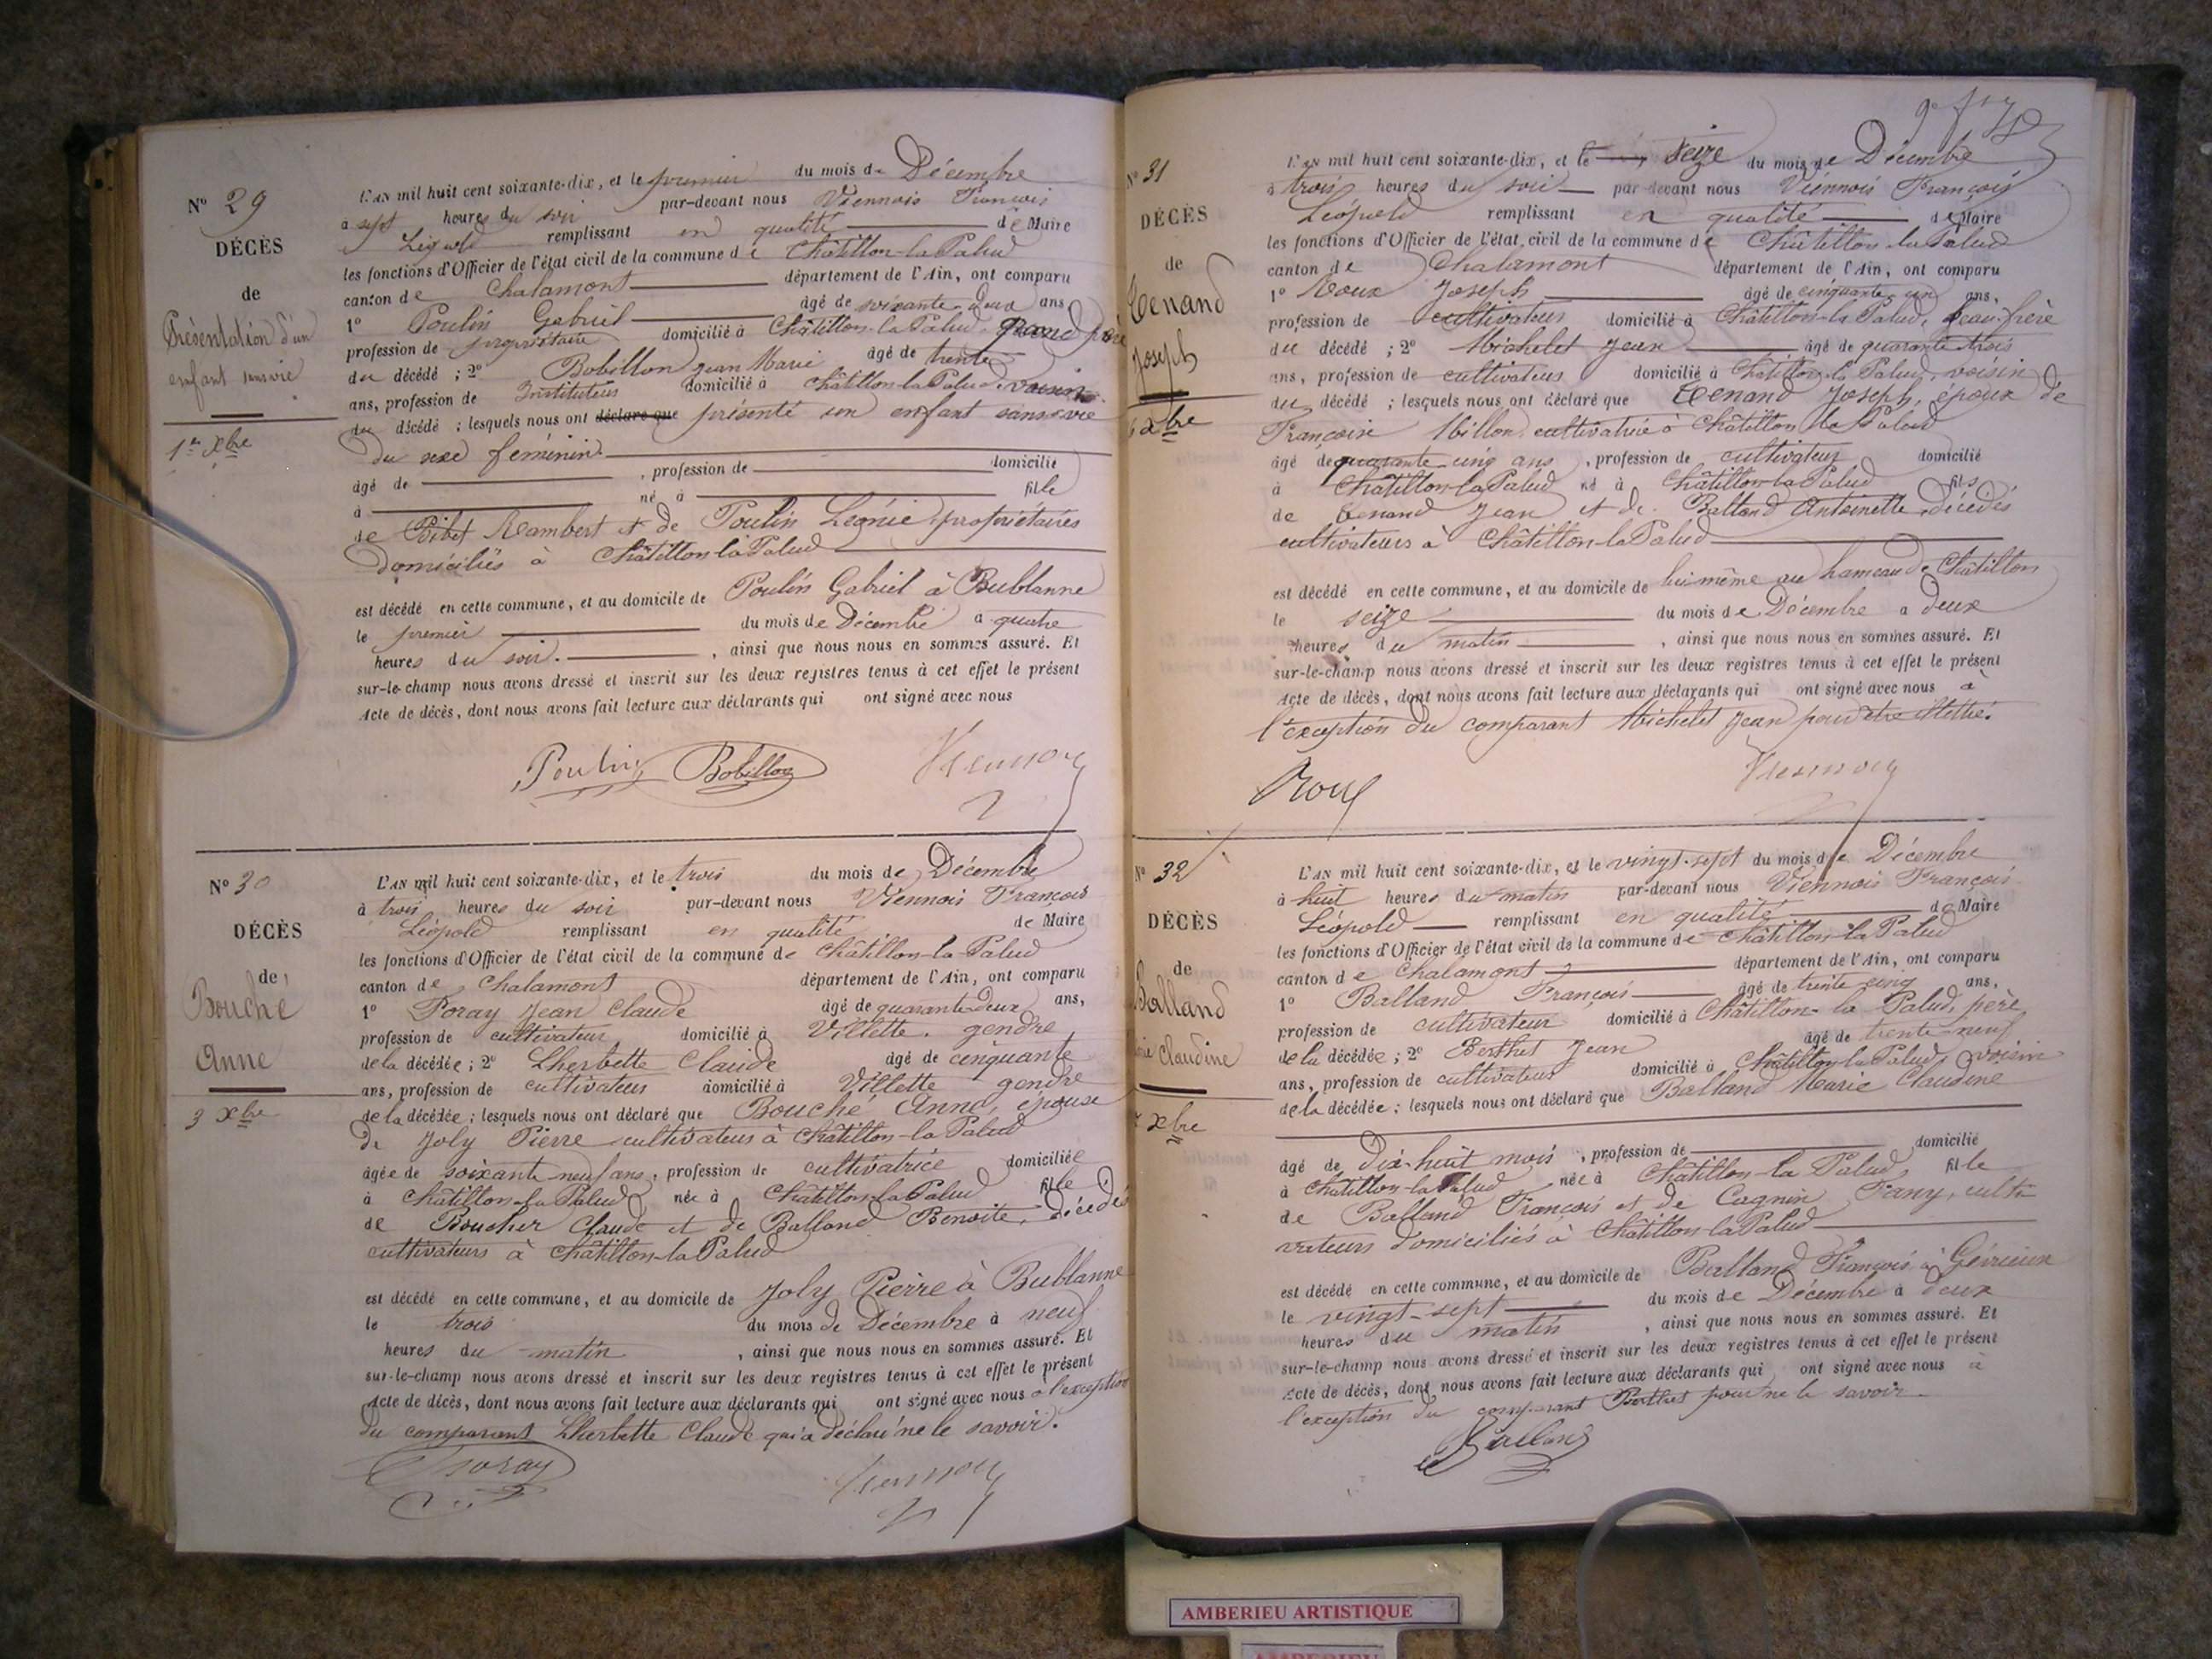 N° 29
DÉCÈS
de
Présentation d'un
enfant sans vie
1er Xbre
L'AN mil huit cent soixante-dix, et le premier du mois de Décembre
à sept heures du soir par-devant nous Viennois François
Léopold remplissant en qualité de Maire
les fonctions d'Officier de l'état civil de la commune de Châtillon-la-Palud
canton de Chalamont département de l'Ain, ont comparu
1° Poulin Gabriel âgé de soixante-deux ans
profession de propriétaire domicilié à Châtillon-la-Palud, grand père
du décédé ; 2° Bobillon Jean Marie âgé de trente
ans, profession de Instituteur domicilié à Châtillon-la-Palud, voisin
du décédé ; lesquels nous ont déclaré que présenté un enfant sans vie
du sexe féminin
âgé de , profession de domicilié
à né à fille
de Bibet Rambert et de Poulin Léonie propriétaires
domiciliés à Châtillon-la-Palud
est décédé en cette commune, et au domicile de Poulin Gabriel à Bublanne
le premier du mois de Décembre à quatre
heures du soir. , ainsi que nous nous en sommes assuré. Et
sur-le-champ nous avons dressé et inscrit sur les deux registres tenus à cet effet le présent
Acte de décès, dont nous avons fait lecture aux déclarants qui ont signé avec nous
Poulin Bobillon Viennois
N° 30
DÉCÈS
de
Bouché
Anne
3 Xbre
L'AN mil huit cent soixante-dix, et le trois du mois de Décembre
à trois heures du soir par-devant nous Viennois François
Léopold remplissant en qualité de Maire
les fonctions d'Officier de l'état civil de la commune de Châtillon-la-Palud
canton de Chalamont département de l'Ain, ont comparu
1° Foray Jean Claude âgé de quarante-deux ans,
profession de cultivateur domicilié à Villette, gendre
de la décédée ; 2° Lherbette Claude âgé de cinquante
ans, profession de cultivateur domicilié à Villette gendre
de la décédée ; lesquels nous ont déclaré que Bouché Anne, épouse
de Joly Pierre cultivateur à Châtillon-la-Palud
âgée de soixante neuf ans, profession de cultivatrice domiciliée
à Châtillon-la-Palud née à Châtillon-la-Palud fille
de Boucher Claude et de Balland Benoite, décédés
cultivateurs à Châtillon-la-Palud
est décédé en cette commune, et au domicile de Joly Pierre à Bublanne
le trois du mois de Décembre à neuf
heures du matin , ainsi que nous nous en sommes assuré. Et
sur-le-champ nous avons dressé et inscrit sur les deux registres tenus à cet effet le présent
Acte de décès, dont nous avons fait lecture aux déclarants qui ont signé avec nous à l'exception
du comparant Lherbette Claude qui a déclaré ne le savoir.
Foray Viennois
N° 31
DÉCÈS
de
Tenand
Joseph
Xbre
L'AN mil huit cent soixante-dix, et le seize du mois de Décembre
à trois heures du soir par-devant nous Viennois François
Léopold remplissant en qualité de Maire
les fonctions d'Officier de l'état civil de la commune de Châtillon-la-Palud
canton de Chalamont département de l'Ain, ont comparu
1° Roux Joseph âgé de cinquante-un ans,
profession de cultivateur domicilié à Châtillon-la-Palud, beau-frère
du décédé ; 2° Michelet Jean âgé de quarante trois
ans, profession de cultivateur domicilié à Châtillon-la-Palud, voisin
du décédé ; lesquels nous ont déclaré que Tenand Joseph, époux de
Françoise Millon cultivatrice à Châtillon-la-Palud
âgé de quarante-cinq ans , profession de cultivateur domicilié
à Châtillon-la-Palud né à Châtillon-la-Palud fils
de Tenand Jean et de Balland Antoinette, décédés
cultivateurs à Châtillon-la-Palud
est décédé en cette commune, et au domicile de lui même au hameau de Châtillon
le seize du mois de Décembre à deux
heures du matin , ainsi que nous nous en sommes assuré. Et
sur-le-champ nous avons dressé et inscrit sur les deux registres tenus à cet effet le présent
Acte de décès, dont nous avons fait lecture aux déclarants qui ont signé avec nous à
l'exception du comparant Michelet Jean pour être illettré.
Roux Viennois
N° 32
DÉCÈS
de
Balland
Claudine
Xbre
L'AN mil huit cent soixante-dix, et le vingt-sept du mois de Décembre
à huit heures du matin par-devant nous Viennois François
Léopold remplissant en qualité de Maire
les fonctions d'Officier de l'état civil de la commune de Châtillon-la-Palud
canton de Chalamont département de l'Ain, ont comparu
1° Balland François âgé de trente cinq ans,
profession de cultivateur domicilié à Châtillon-la-Palud, père
de la décédée ; 2° Berthet Jean âgé de trente-neuf
ans, profession de cultivateur domicilié à Châtillon-la-Palud, voisin
de la décédée ; lesquels nous ont déclaré que Balland Marie Claudine
âgé de Dix-huit mois , profession de domicilié
à Châtillon-la-Palud née à Châtillon-la-Palud, fille
de Balland François et de Cagnin Fany, culti
vateurs domiciliés à Châtillon-la-Palud
est décédé en cette commune, et au domicile de Balland François à Gévrieux
le vingt-sept du mois de Décembre à deux
heures du matin , ainsi que nous nous en sommes assuré. Et
sur-le-champ nous avons dressé et inscrit sur les deux registres tenus à cet effet le présent
Acte de décès, dont nous avons fait lecture aux déclarants qui ont signé avec nous à
l'exception du comparant Berthet pour ne le savoir.
Balland
AMBERIEU ARTISTIQUE
AMBERIEU